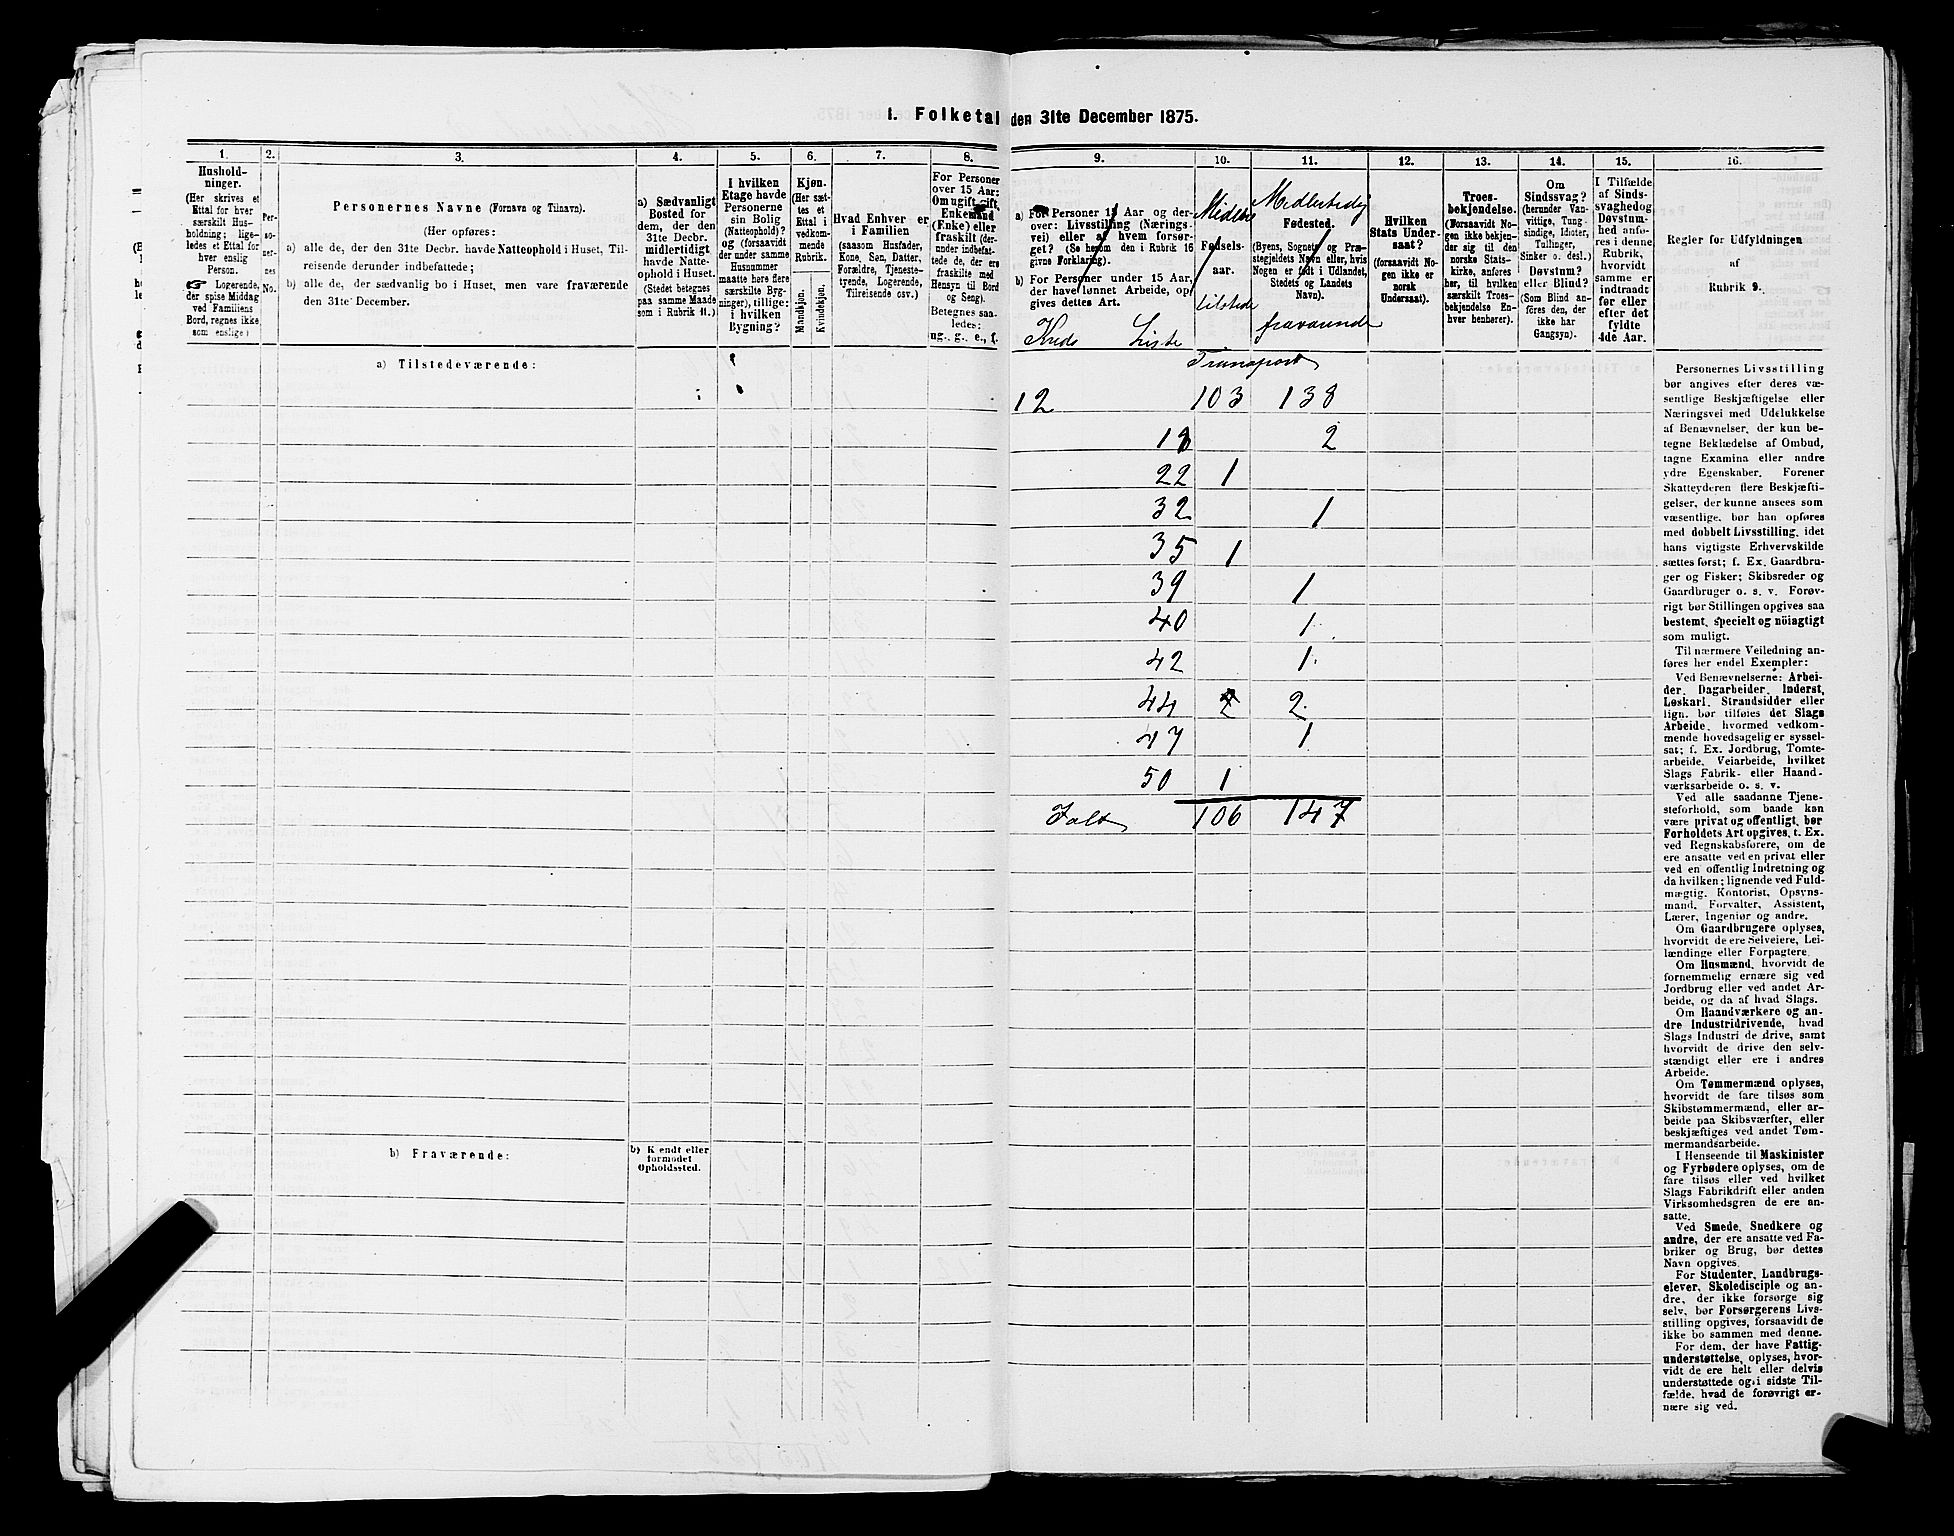 1. Folketal den 31te December 1875.
1.
2.
3.
4.
5.
6.
7.
8.
9.
10.
11.
12.
13.
14.
15.
16.
Husholdninger.
(Her skrives et
Ettal for hver
særskilt Husholdning;
ligeledes et Ettal for
hver enslig
Person.
☞ Logerende,
der spise Middag
ved Familiens
Bord, regnes ikke
som enslige.)
Personernes No.
Personernes Navne (Fornavn og Tilnavn).
(Her opføres:
a) alle de, der den 31te Decbr. havde Natteophold i Huset, Tilreisende derunder indbefattede;
b) alle de, der sædvanlig bo i Huset, men vare fraværende
den 31te December.
a) Sædvanligt
Bosted for
dem, der den
31te Decbr.
midlertidigt
havde Natteophold i Huset.
(Stedet betegnes
paa samme Maade
som i Rubrik 11.)
I hvilken
Etage havde
Personerne
sin Bolig
(Natteophold)?
og (forsaavidt
der under samme
Husnummer
maatte høre flere
særskilte Bygninger), tillige:
i hvilken
Bygning?
Kjøn.
(Her sættes et
Ettal i
vedkommende
Rubrik.
Mandkjøn.
Kvindekjøn.
Hvad Enhver er
i Familien
(saasom Husfader,
Kone, Søn, Datter,
Forældre, Tjenestetyende, Logerende,
Tilreisende osv.)
For Personer
over 15 Aar:
Om ugift, gift,
Enkemand
(Enke) eller
fraskilt (derunder indbefattede de, der ere
fraskilte med
Hensyn til Bord
og Seng).
Betegnes saaledes:
ug., g., e., f.
a) For Personer 15 Aar og derover: Livsstilling (Næringsvei) eller af hvem forsørget? (Se herom den i Rubrik 16
givne Forklaring).
b) For Personer under 15 Aar,
der have lønnet Arbeide, opgives dettes Art.
Kreds Liste
Fødsels-
aar.
tilstede
Fødested.
(Byens, Sognets og Præstegjeldets Navn eller, hvis
Nogen er født i Udlandet,
Stedets og Landets
Navn).
fraværende
Hvilken
Stats Undersaat?
(forsaavidt Nogen ikke er
norsk
Undersaat).
Troesbekjendelse.
(Forsaavidt Nogen ikke bekjender sig til den
norske Statskirke, anføres
her, til hvilken
særskilt Troesbekjendelse Enhver benhører).
Om
Sindssvag?
(herunder Vanvittige, Tungsindige, Idioter,
Tullinger,
Sinker o. desl.)
Døvstum?
eller Blind?
(Som Blind anføres den, der
ikke har
Gangsyn).
I Tilfælde
af Sindssvaghed og
Døvstumhed anføres i denne
Rubrik,
hvorvidt
samme er
indtraadt
før eller
efter det
fyldte
4de Aar.
Regler for Udfyldningen
af
Rubrik 9.
a) Tilstedeværende:
Transport
12 103 138
2
22 1
32 1
35 1
39 1
40 1
42 1
44 2 2
47 1
50 1
Ialt 106 147
b) Fraværende:
b) Kjendt eller
formodet
Opholdssted.
Personernes Livsstilling
bør angives efter deres væsentlige Beskjæftigelse eller
Næringsvei med Udelukkelse
af Benævnelser, der kun betegne Beklædelse af Ombud,
tagne Examina eller andre
ydre Egenskaber. Forener
Skatteyderen flere Beskjæftigelser, der kunne ansees som
væsentlige, bør han opføres
med dobbelt Livsstilling, idet
hans vigtigste Erhvervskilde
sættes først; f. Ex. Gaardbruger og Fisker; Skibsreder og
Gaardbruger o. s. v. Forøvrigt bør Stillingen opgives saa
bestemt, specielt og nöiagtigt
som muligt.
Til nærmere Veiledning anføres her endel Exempler:
Ved Benævnelserne: Arbeider, Dagarbeider, Inderst,
Løskarl, Strandsidder eller
lign. bør tilføies det Slags
Arbeide, hvormed vedkommende hovedsagelig er sysselsat; f. Ex. Jordbrug, Tomtearbeide, Veiarbeide, hvilket
Slags Fabrik- eller Haandværksarbeide o. s. v.
Ved alle saadanne Tjenesteforhold, som baade kan
være privat og offentligt, bør
Forholdets Art opgives, t. Ex.
ved Regnskabsførere, om de
ere ansatte ved en privat eller
ved en offentlig Indretning og
da hvilken; lignende ved Fuldmægtig, Kontorist, Opsynsmand, Forvalter, Assistent,
Lærer, Ingeniør og andre.
Om Gaardbrugere oplyses,
hvorvidt de ere Selveiere, Leilændinge eller Forpagtere.
Om Husmænd, hvorvidt de
fornemmelig ernære sig ved
Jordbrug eller ved andet Arbeide, og da af hvad Slags.
Om Haandværkere og andre Industridrivende, hvad
Slags Industri de drive, samt
hvorvidt de drive den selvstændigt eller ere i andres
Arbeide.
Om Tømmermænd oplyses,
hvorvidt de fare tilsøs som
Skibstømmermænd, eller arbeide paa Skibsværfter, eller
beskjæftiges ved andet Tømmermandsarbeide.
I Henseende til Maskinister
og Fyrbødere oplyses, om de
fare tilsøs eller ved hvilket
Slags Fabrikdrift eller anden
Virksomhedsgren de ere ansatte.
Ved Smede, Snedkere og
andre, der ere ansatte ved Fabriker og Brug, bør dettes
Navn opgives.
For Studenter, Landbrugselever, Skoledisciple og andre, der ikke forsørge sig
selv, bør Forsørgerens Livsstilling opgives, forsaavidt de
ikke bo sammen med denne.
For dem, der have Fattigunderstøttelse, oplyses, hvorvidt de ere helt eller delvis
understøttede og i sidste Tilfælde, hvad de forøvrigt ernære sig ved.